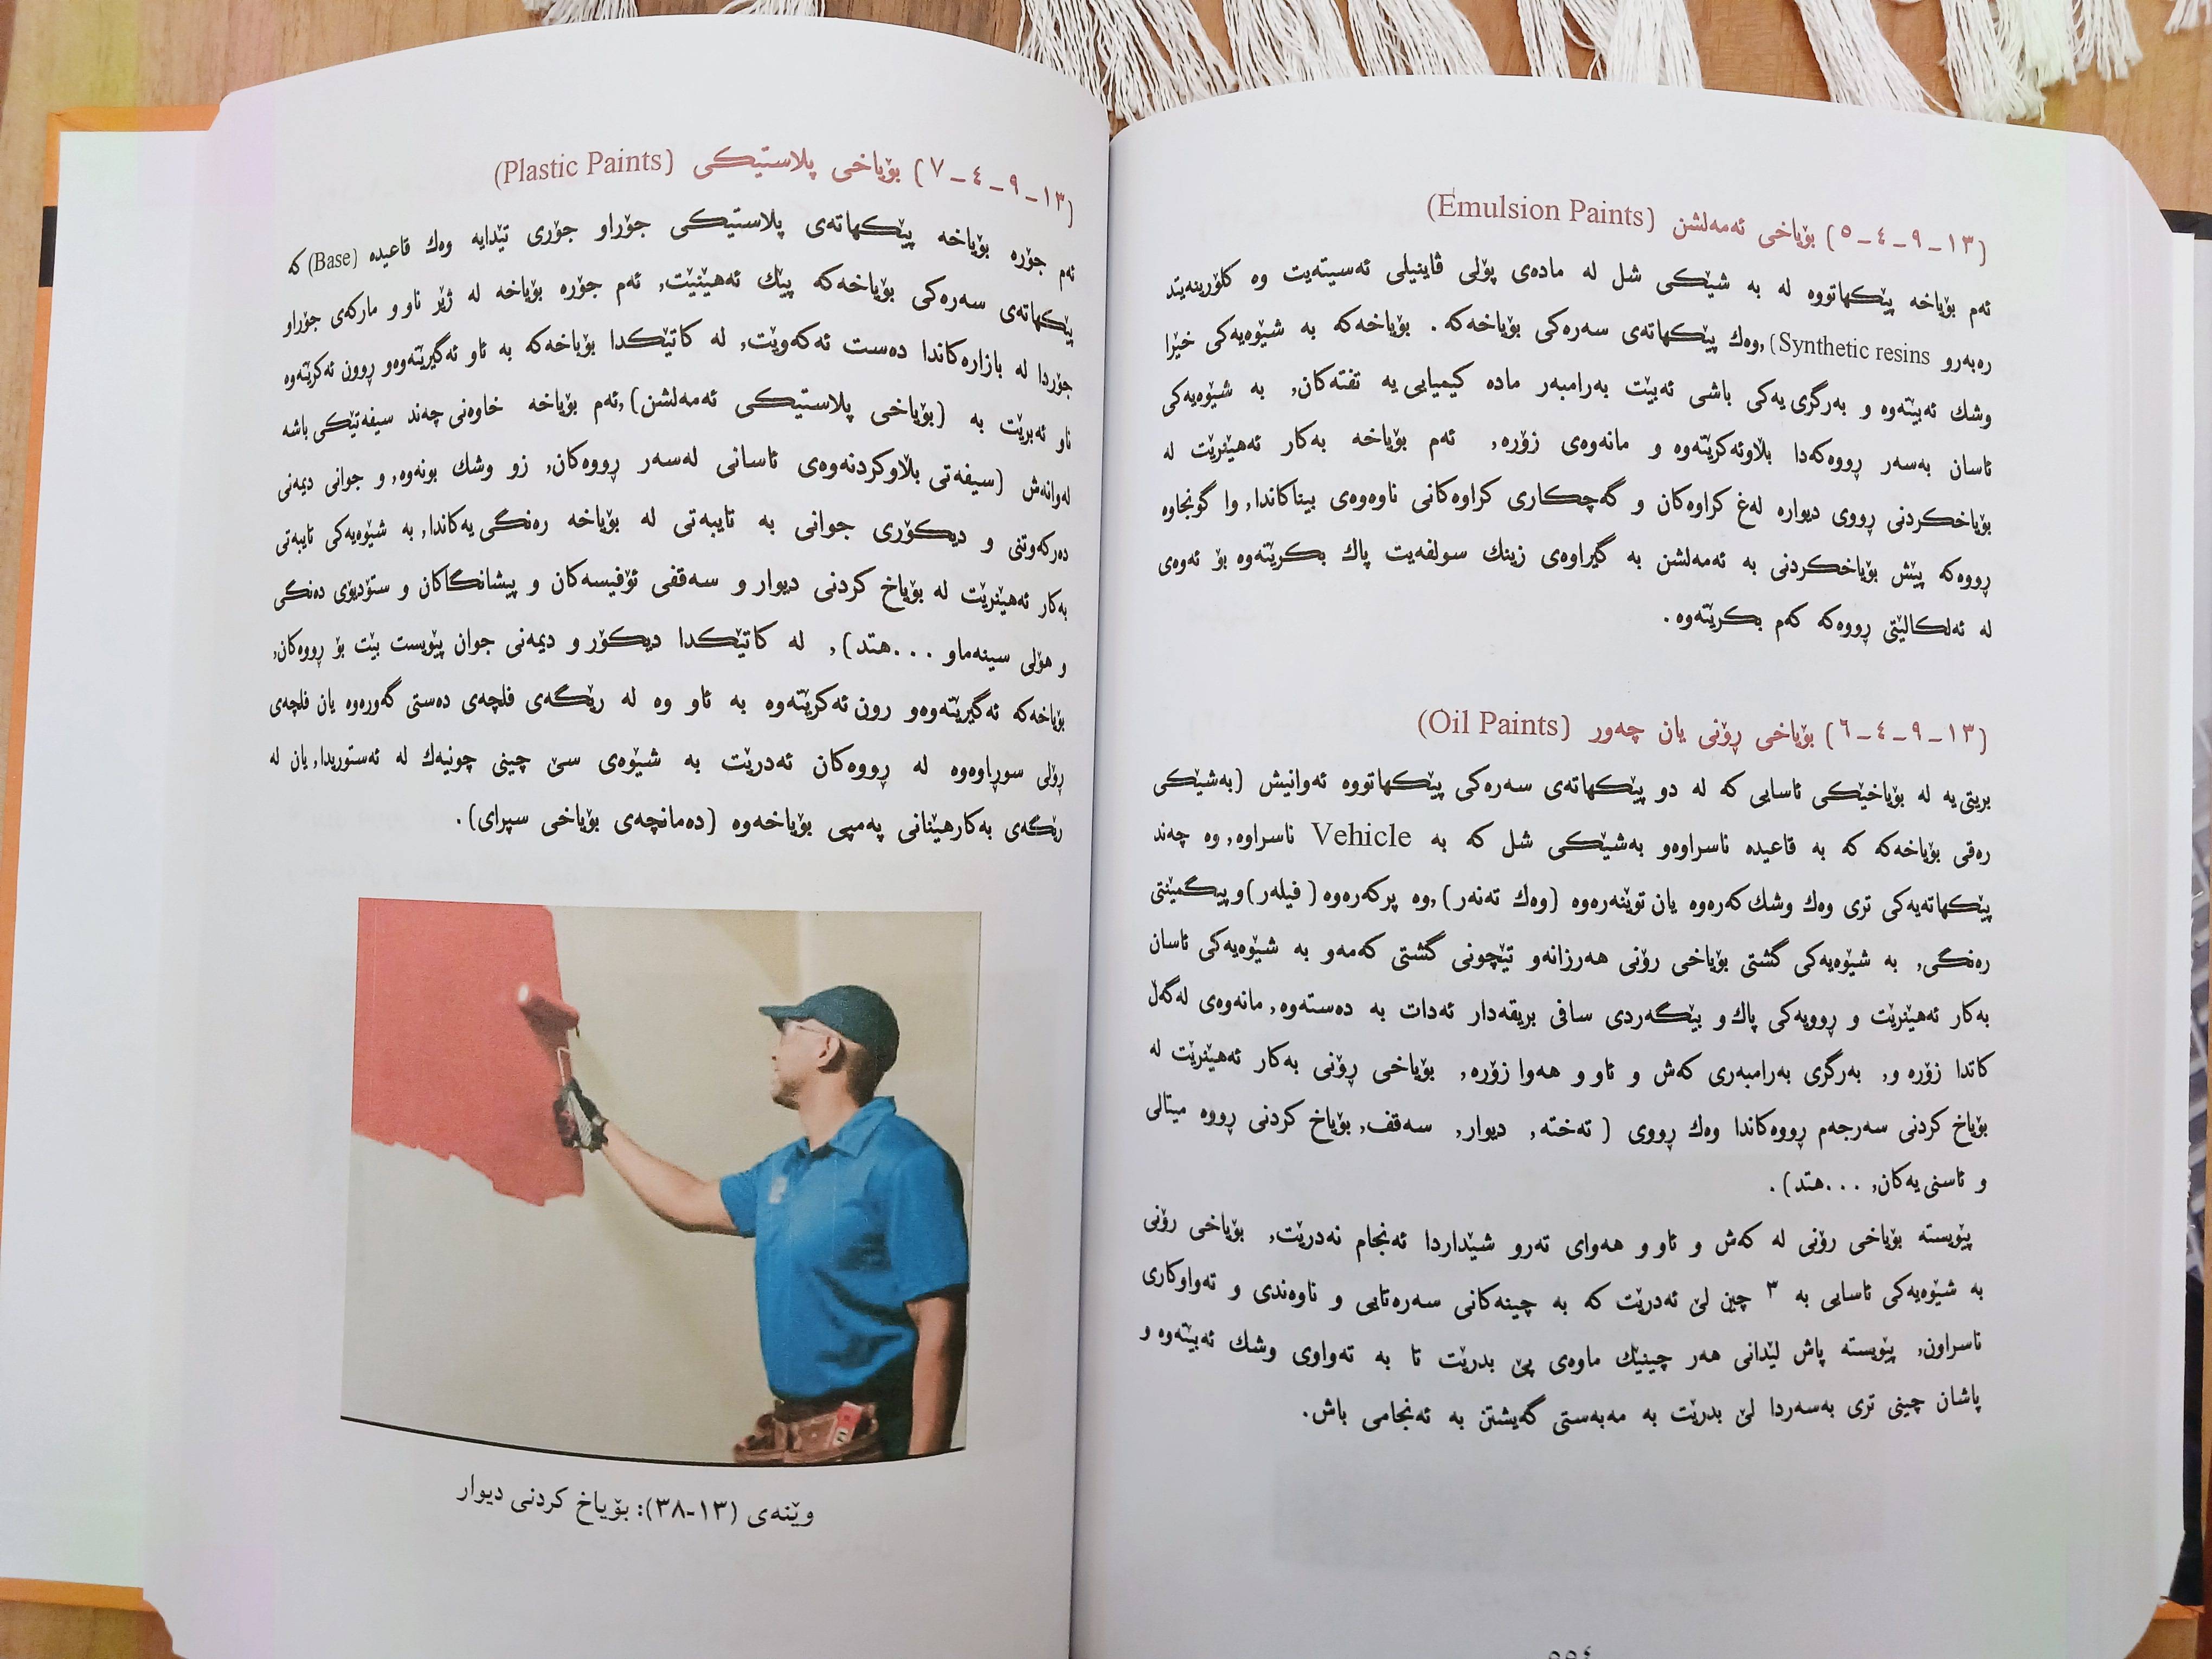 (١٣_٩_٤_٥) بۆیاخی ئەمەلشن (Emulsion Paints)
ئەم بۆیاخە پێکهاتووە لە بە شێکی شل لە مادەی پۆلی ڤاینیلی ئەسیتەیت وە کلۆرینەیتد
رەبەرو Synthetic resins) ,وەك پێکهاتەی سەرەکی بۆیاخەکە. بۆیاخەکە بە شێوەیەکی خێرا
وشك ئەبێتەوە و بەرگری یەکی باشی ئەبێت بەرامبەر مادە کیمیایی یە تفتەکان, بە شێوەیەکی
ئاسان بەسەر ڕووەکەدا بڵاوئەکرێتەوە و مانەوەی زۆرە, ئەم بۆیاخە بەکار ئەهێنرێت لە
بۆیاخکردنی ڕووی دیوارە لەغ کراوەکان و گەچکاری کراوەکانی ناوەوەی بیناکاندا, وا گونجاوە
ڕووەکە پێش بۆیاخکردنی بە ئەمەلشن بە گیراوەی زینك سولفەیت پاك بکرێتەوە بۆ ئەوەی
لە ئەلکالێتی ڕووەکە کەم بکرێتەوە.
(١٣_٩_٤_٦) بۆیاخی ڕۆنی یان چەور (Oil Paints)
بریتی یە لە بۆیاخێکی ئاسایی کە لە دو پێکهاتەی سەرەکی پێکهاتووە ئەوانیش (بەشێکی
رەقی بۆیاخەکە کە بە قاعیدە ناسراوەو بەشێکی شل کە بە Vehicle ناسراوە, وە چەند
پێکهاتەیەکی تری وەك وشك کەرەوە یان توێنەرەوە (وەك تەنەر) ,وە پرکەرەوە (فیلەر) و پیگمێنتی
رەنگی, بە شێوەیەکی گشتی بۆیاخی رۆنی هەرزانەو تێچونی گشتی کەمەو بە شێوەیەکی ئاسان
بەکار ئەهێنرێت و ڕوویەکی پاك و بێگەردی سافی بریقەدار ئەدات بە دەستەوە, مانەوەی لەگەڵ
کاتدا زۆرە و, بەرگری بەرامبەری کەش و ئاو و هەوا زۆرە, بۆیاخی ڕۆنی بەکار ئەهێنرێت لە
بۆیاخ کردنی سەرجەم ڕووەکاندا وەك ڕووی (تەختە, دیوار, سەقف, بۆیاخ کردنی ڕووە میتالی
و ئاسنی یەکان, ...هتد).
پێویستە بۆیاخی رۆنی لە کەش و ئاو و هەوای تەرو شێداردا ئەنجام نەدرێت, بۆیاخی رۆنی
بە شێوەیەکی ئاسایی بە ٣ چین لێ ئەدرێت کە بە چینەکانی سەرەتایی و ناوەندی و تەواوکاری
ناسراون, پێویستە پاش لێدانی هەر چینێك ماوەی پێ بدرێت تا بە تەواوی وشك ئەبێتەوە و
پاشان چینی تری بەسەردا لێ بدرێت بە مەبەستی گەیشتن بە ئەنجامی باش.
(١٣_٩_٤_٧) بۆیاخی پلاستیکی (Plastic Paints)
ئەم جۆرە بۆیاخە پێکهاتەی پلاستیکی جۆراو جۆری تێدایە وەك قاعیدە (Base) کە
پێکهاتەی سەرەکی بۆیاخەکە پێك ئەهێنێت, ئەم جۆرە بۆیاخە لە ژێر ناو و مارکەی جۆراو
جۆردا لە بازارەکاندا دەست ئەکەوێت, لە کاتێکدا بۆیاخەکە بە ئاو ئەگیرێتەوەو ڕوون ئەکرێتەوە
ناو ئەبرێت بە (بۆیاخی پلاستیکی ئەمەلشن) ,ئەم بۆیاخە خاوەنی چەند سیفەتێکی باشە
لەوانەش (سیفەتی بڵاوکردنەوەی ئاسانی لەسەر ڕووەکان, زو وشك بونەوە, و جوانی دیمەنی
دەرکەوتنی و دیکۆری جوانی بە تایبەتی لە بۆیاخە رەنگی یەکاندا, بە شێوەیەکی تایبەتی
بەکار ئەهێنرێت لە بۆیاخ کردنی دیوار و سەقفی ئۆفیسەکان و پیشانگاکان و ستۆدیۆی دەنگی
و هۆلی سینەماو ...هتد), لە کاتێکدا دیکۆر و دیمەنی جوان پێویست بێت بۆ ڕووەکان,
بۆیاخەکە ئەگیرێتەوەو رون ئەکرێتەوە بە ئاو وە لە رێگەی فلچەی دەستی گەورەوە یان فلچەی
رۆلی سوڕاوەوە لە ڕووەکان ئەدرێت بە شێوەی سێ چینی چونیەك لە ئەستوریدا, یان لە
رێگەی بەکارهێنانی پەمپی بۆیاخەوە (دەمانچەی بۆیاخی سپرای).
وێنەی (١٣-٣٨): بۆیاخ کردنی دیوار